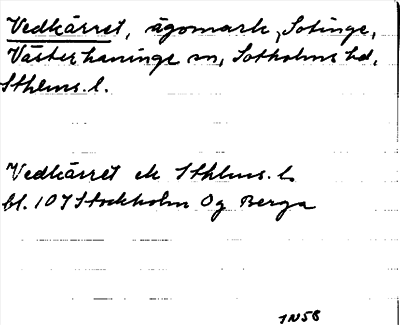 Vedkärret, ägomark, Sotinge,
Västerhaninge sn, Sotholms hd,
Sthlms. l.
Vedkärret ek Sthlms. l.
bl. 107 Stockholm Og Berga
1N5B